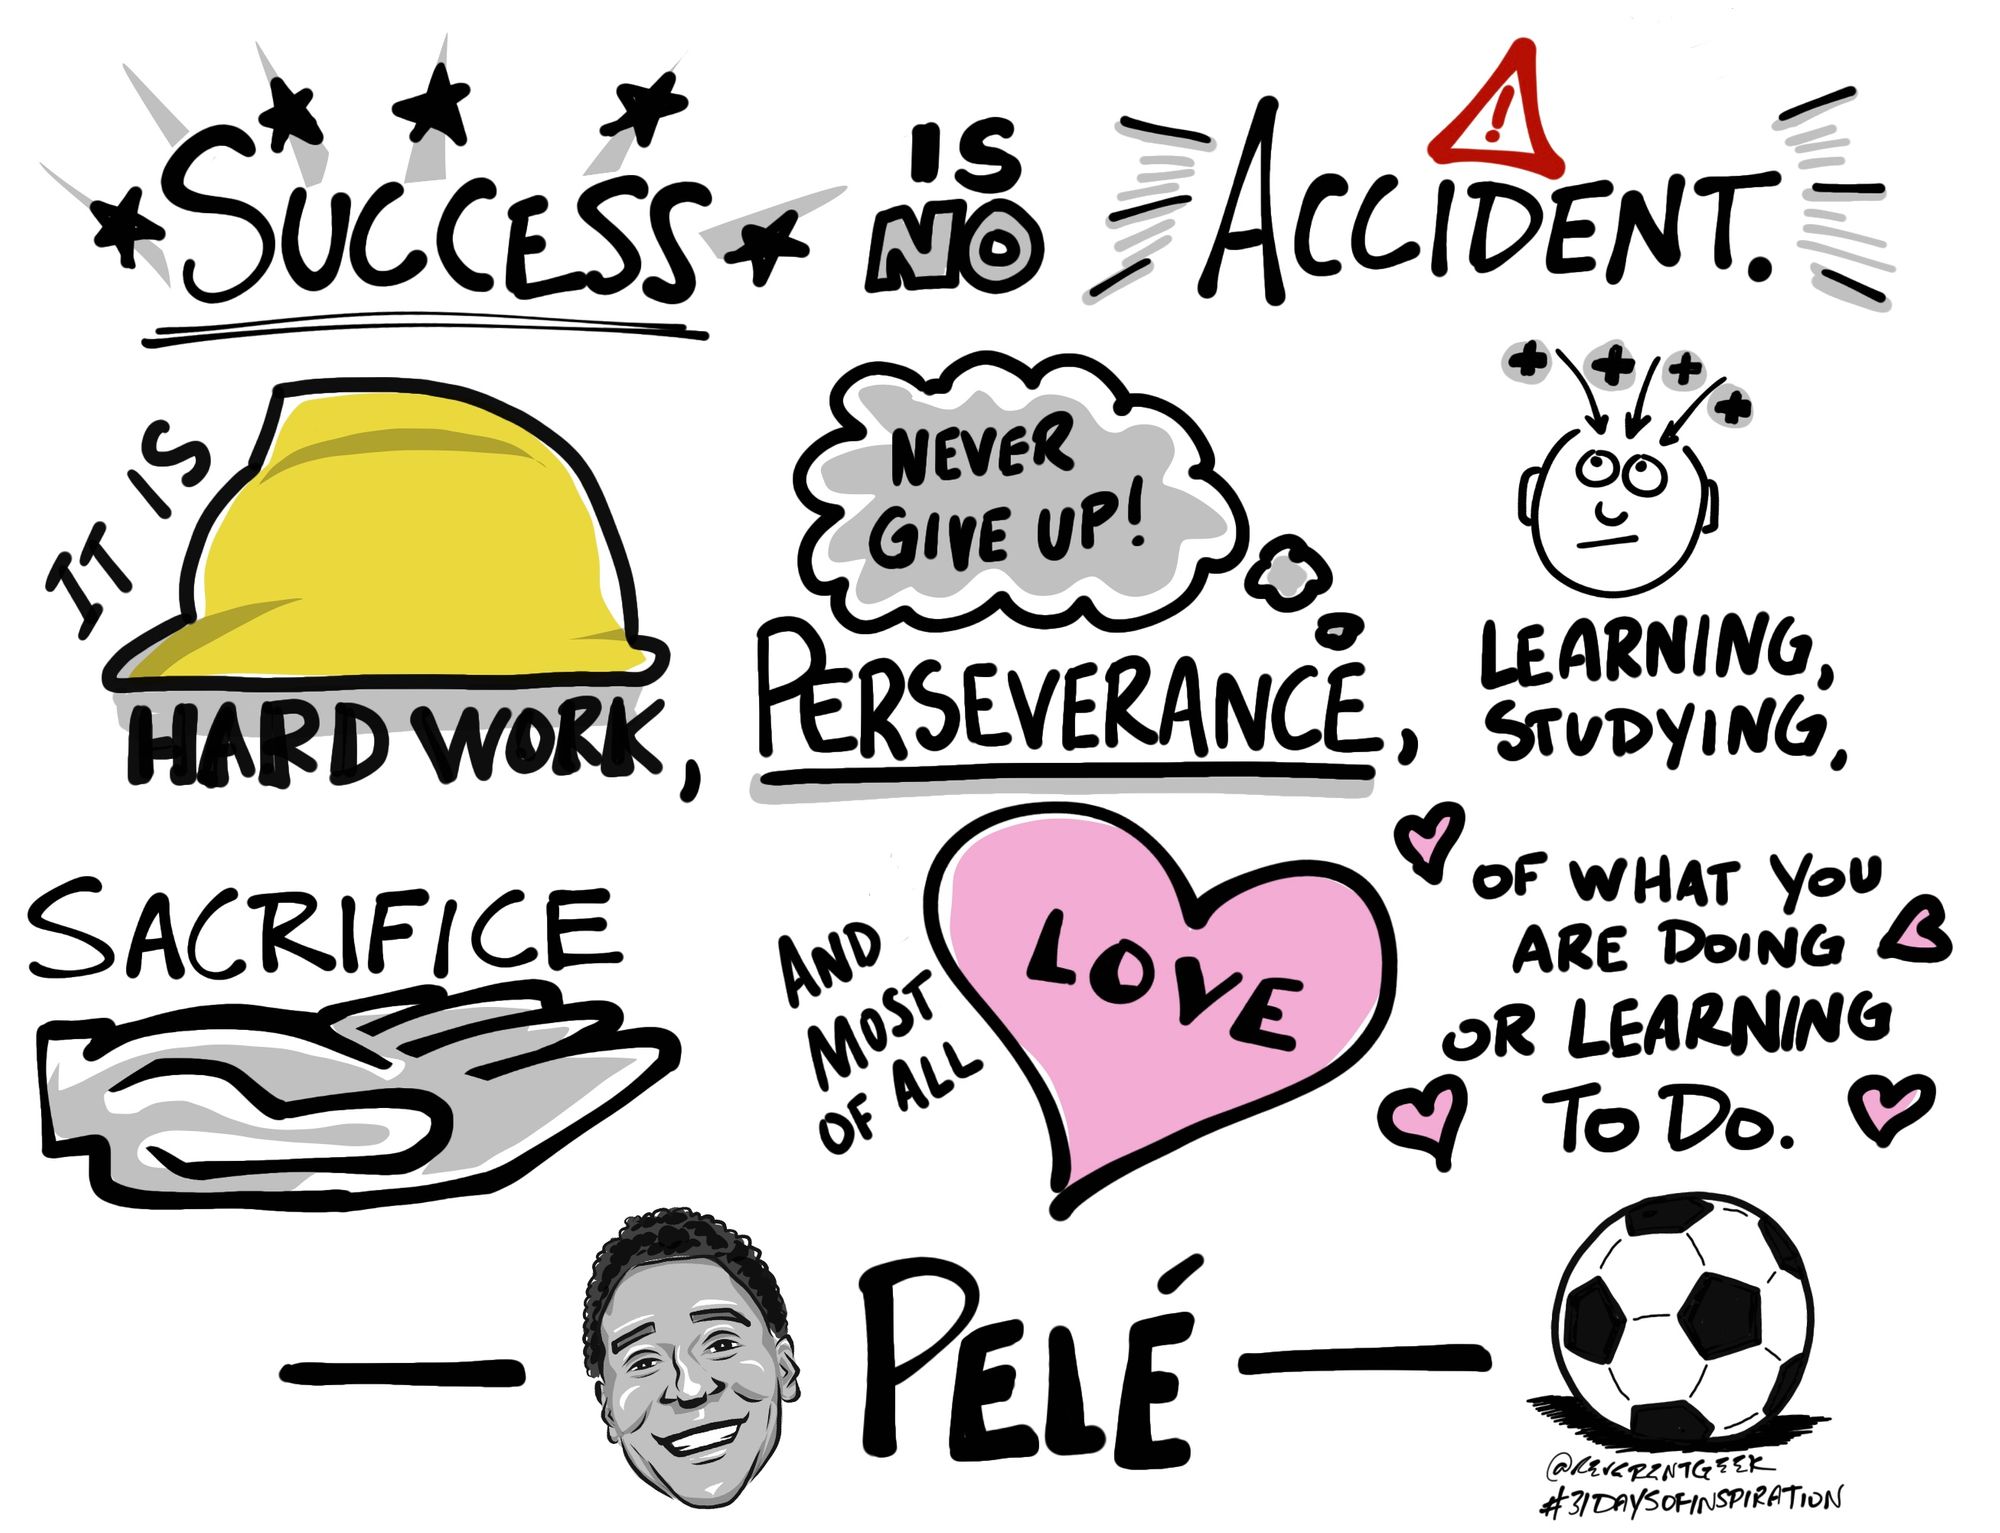 SUCCESS IS NO ACCIDENT.
IT IS
HARD WORK,
NEVER
GIVE UP!
PERSEVERANCE,
LEARNING,
STUDYING,
SACRIFICE
AND
MOST
OF ALL
LOVE
OF WHAT YOU
ARE DOING
OR LEARNING
TO DO.
— PELÉ —
@REVERENTGEEK
#31DAYSOFINSPIRATION